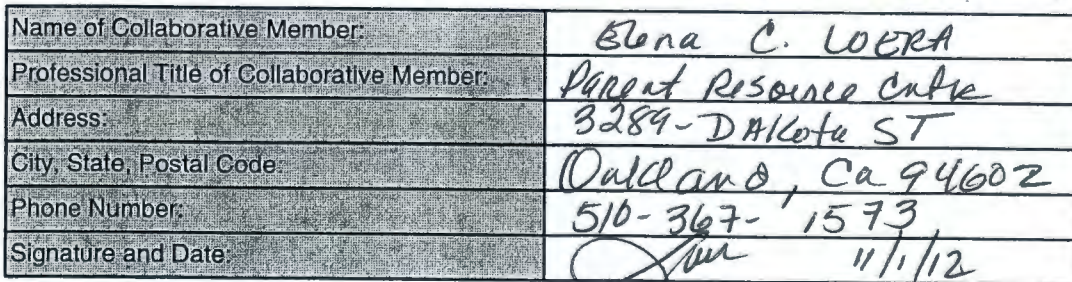 Name of Collaborative Member: Elena C. LOERA
Professional Title of Collaborative Member: Parent Resource
Address: 3289-DAKota ST
City, State, Postal Code: Oakland, Ca 94602
Phone Number: 510-367-1573
Signature and Date: 11/1/12